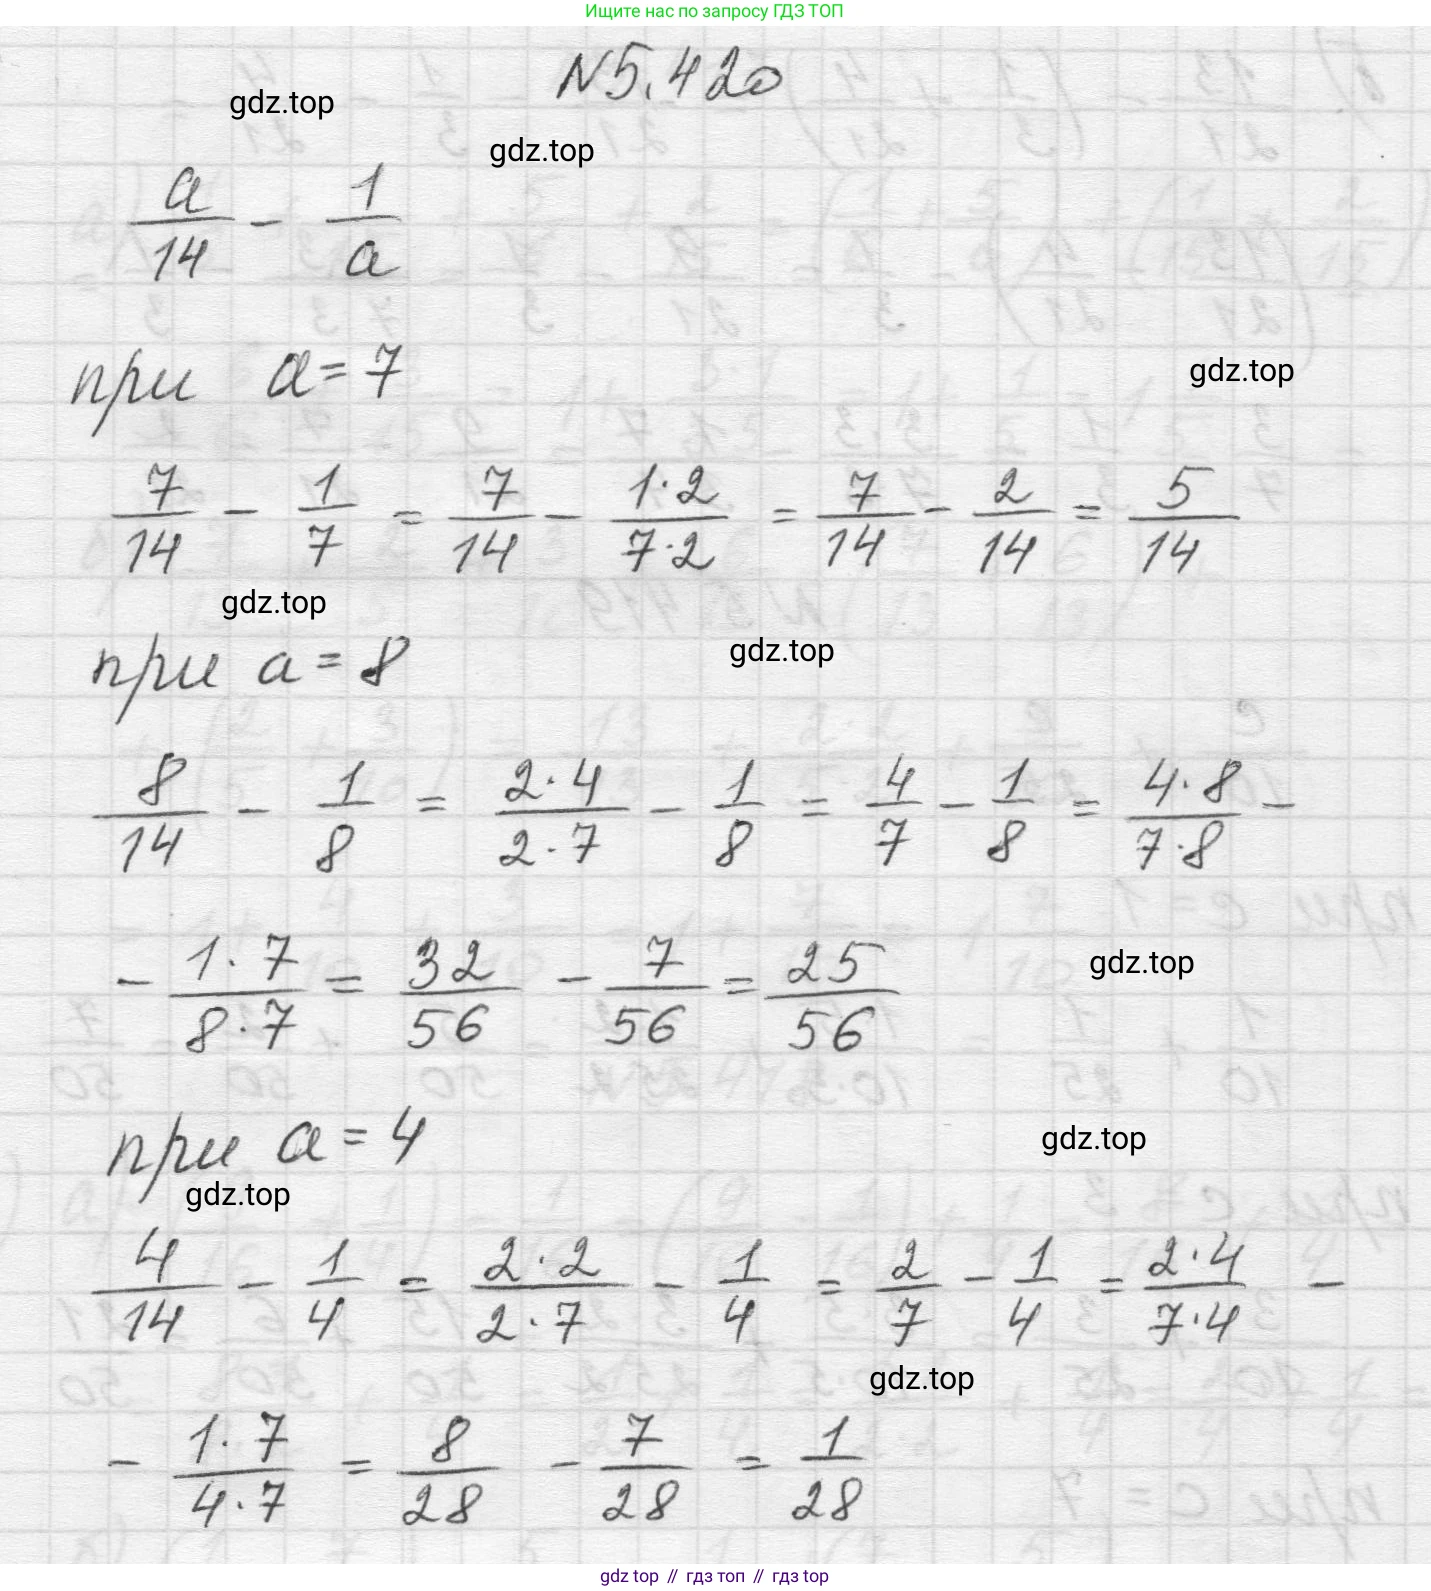 Ищите нас по запросу ГДЗ ТОП
N5.420
gdz.top
gdz.top
a/14 - 1/a
при a = 7
gdz.top
7/14 - 1/7 = 7/14 - 1·2/7·2 = 7/14 - 2/14 = 5/14
gdz.top
при a = 8
gdz.top
8/14 - 1/8 = 2·4/2·7 - 1/8 = 4/7 - 1/8 = 4·8/7·8 -
- 1·7/8·7 = 32/56 - 7/56 = 25/56
gdz.top
при a = 4
gdz.top
gdz.top
4/14 - 1/4 = 2·2/2·7 - 1/4 = 2/7 - 1/4 = 2·4/7·4 -
gdz.top
- 1·7/4·7 = 8/28 - 7/28 = 1/28
gdz top // гдз топ // гдз top